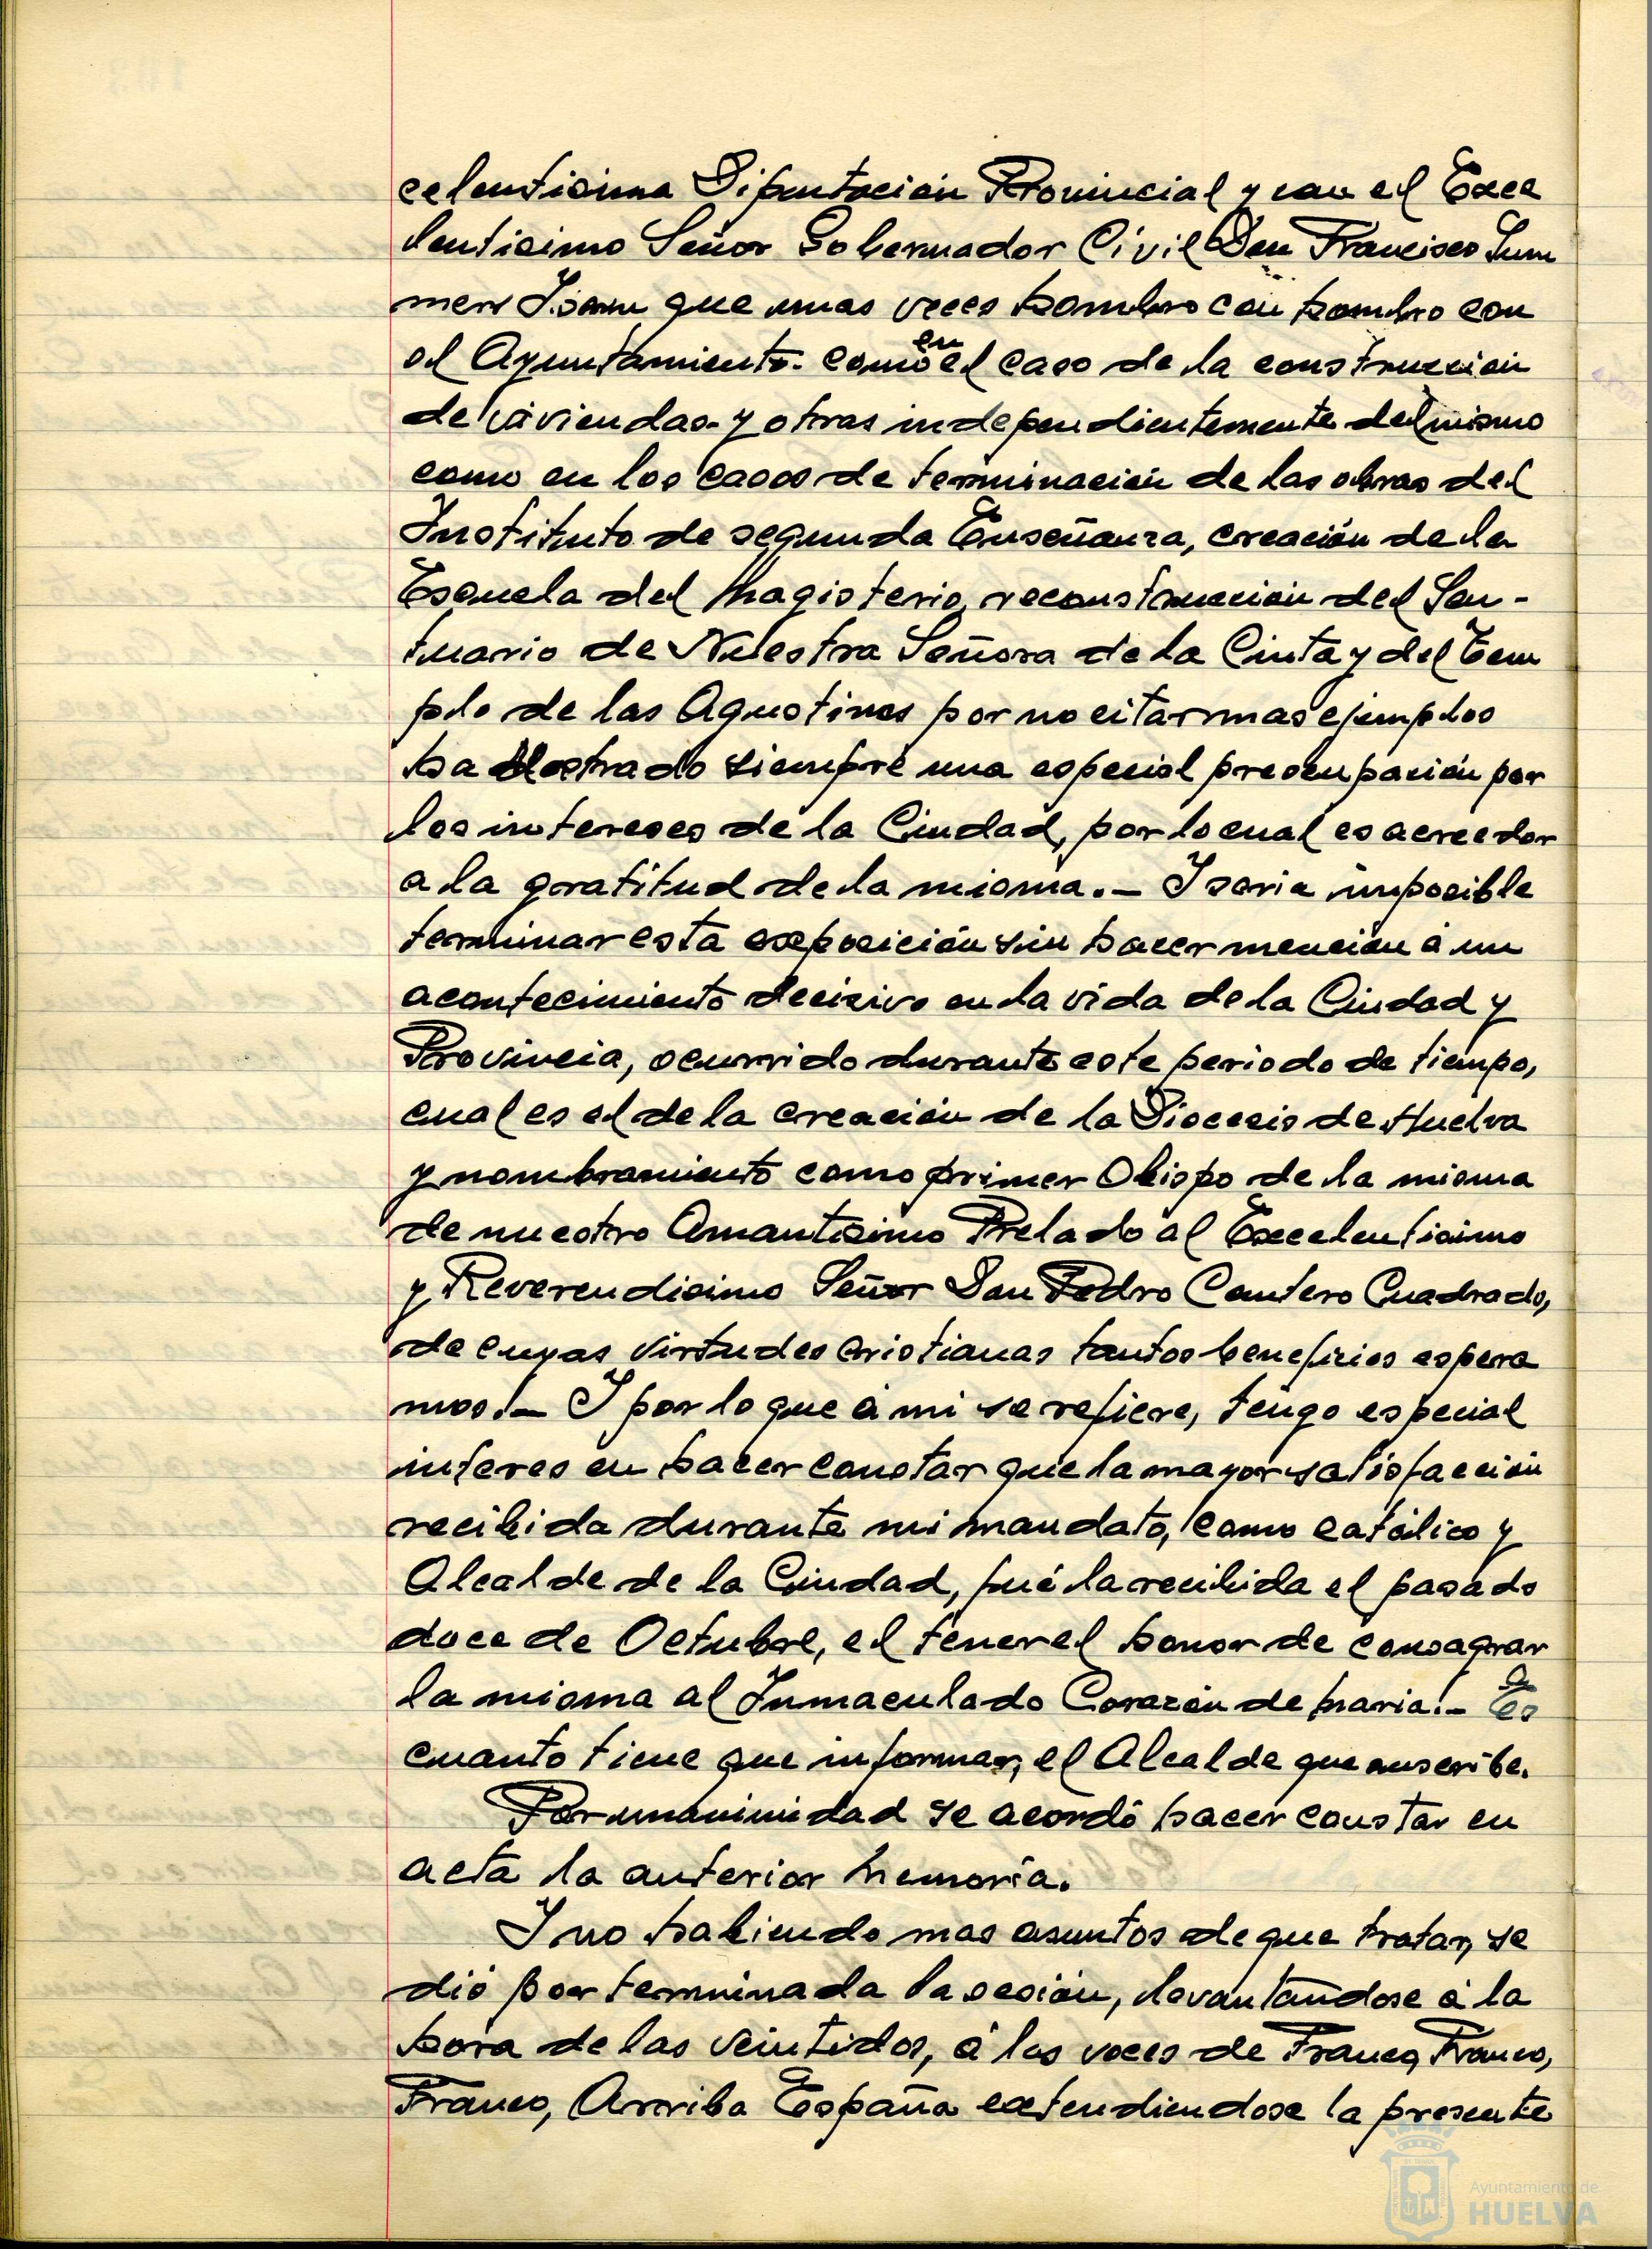 celentisima Diputación Provincial y con el Exce
lentisimo Señor Gobernador Civil Don Francisco Sum
mers Isern que unas veces hombro con hombro con
el Ayuntamiento- como en el caso de la construcción
de viviendas- y otras independientemente del mismo
como en los casos de terminación de las obras del
Instituto de segunda Enseñanza, creación de la
Escuela del Magisterio, reconstrucción del San-
tuario de Nuestra Señora de la Cinta y del Tem
plo de las Agustinas por no citar mas ejemplos
ha mostrado siempre una especial preocupación por
los intereses de la Ciudad, por lo cual es acreedor
a la gratitud de la misma.- I seria imposible
terminar esta exposición sin hacer mención á un
acontecimiento decisivo en la vida de la Ciudad y
Provincia, ocurrido durante este periodo de tiempo,
cual es el de la creación de la Diocesis de Huelva
y nombramiento como primer Obispo de la misma
de nuestro Amantisimo Prelado al Excelentisimo
y Reverendisimo Señor Don Pedro Cantero Cuadrado,
de cuyas virtudes cristianas tantos beneficios espera
mos.- I por lo que á mi se refiere, tengo especial
interes en hacer constar que la mayor satisfacción
recibida durante mi mandato, como católico y
Alcalde de la Ciudad, fué la recibida el pasado
doce de Octubre, el tener el honor de consagrar
la misma al Inmaculado Corazón de Maria.- Es
cuanto tiene que informar, el Alcalde que suscribe.
Por unanimidad se acordó hacer constar en
acta la anterior Memoria.
I no habiendo mas asuntos de que tratar, se
dió por terminada la sesión, levantandose á la
hora de las veintidos, á las voces de Franco, Franco,
Franco, Arriba España extendiendose la presente
Ayuntamiento de
HUELVA